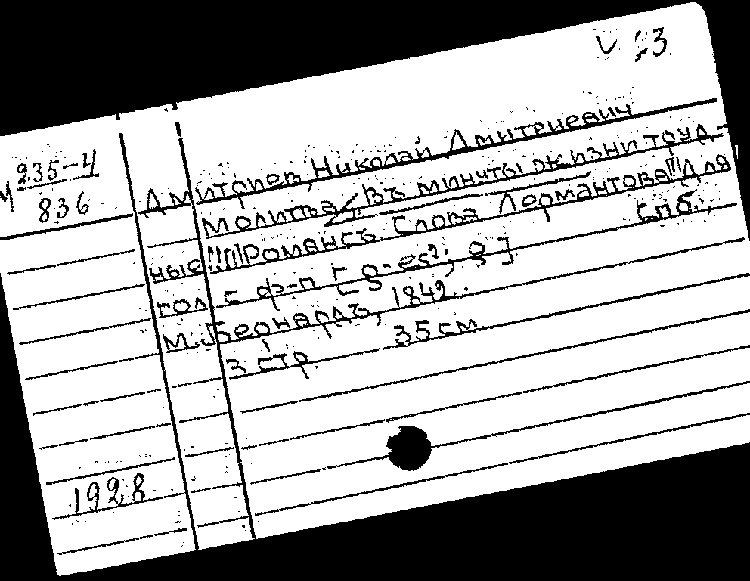 V 23
М 235-4
836
Дмитриев, Николай Дмитриевич
Молитва. Въ минуты жизни труд-
ные!!!! Романсъ. Слова Лермантова. Для
гол. с ф-п [g-es²; g] Спб.,
М. Бернардъ, 1842.
3 стр. 35 см.
1928